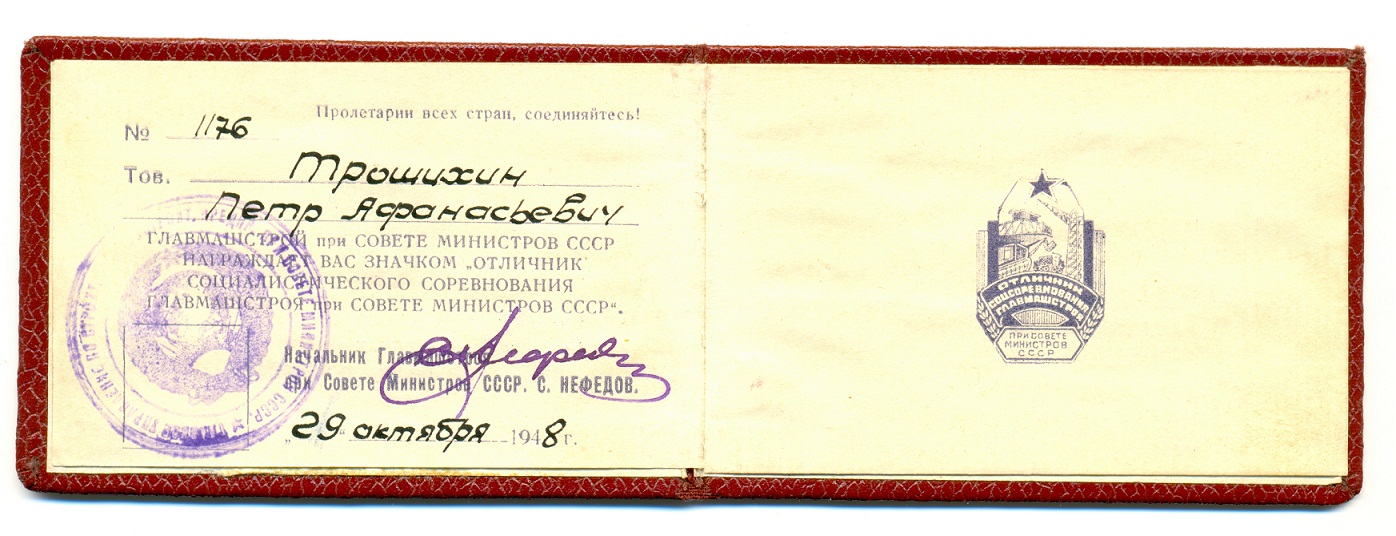 Пролетарии всех стран, соединяйтесь!
№ 1176
Тов. Трошихин
Петр Афанасьевич
ГЛАВМАШСТРОЙ при СОВЕТЕ МИНИСТРОВ СССР
НАГРАЖДАЕТ ВАС ЗНАЧКОМ „ОТЛИЧНИК
СОЦИАЛИСТИЧЕСКОГО СОРЕВНОВАНИЯ
ГЛАВМАШСТРОЯ при СОВЕТЕ МИНИСТРОВ СССР“.
Начальник Главмашстроя
при Совете Министров СССР. С. НЕФЕДОВ.
„29“ октября 1948 г.
ОТЛИЧНИК
СОЦСОРЕВНОВАНИЯ
ГЛАВМАШСТРОЯ
ПРИ СОВЕТЕ
МИНИСТРОВ
СССР